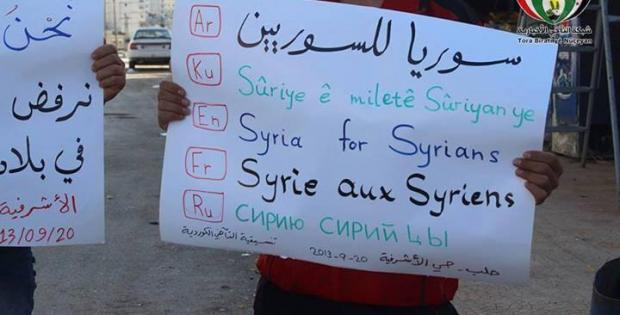 نحن
نرفض
في بلاد
الأشرفية
13/09/20
Ar سوريا للسوريين
Ku Sûriye ê miletê Sûriyan ye
En Syria for Syrians
Fr Syrie aux Syriens
Ru СИРИЮ СИРИЙЦЫ
تنسيقية التآخي الكوردية
حلب - حي الأشرفية 20-9-2013
شبكة التآخي الأخبارية
Tora Biratiyê Nûçeyan